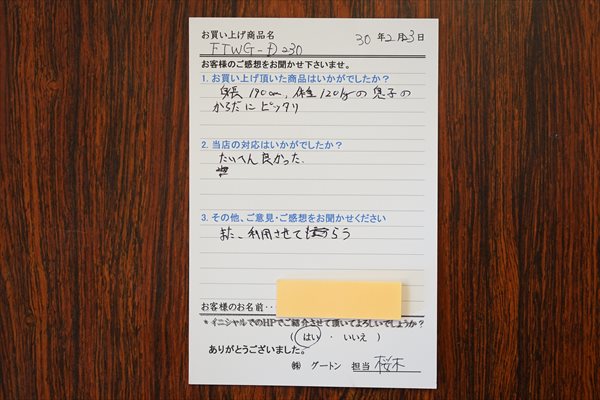 お買い上げ商品名
30 年 2 月 23 日
FTWG-D230
お客様のご感想をお聞かせ下さいませ。
1. お買い上げ頂いた商品はいかがでしたか？
身長 190cm, 体重 120kgの 息子の
からだに ピッタリ
2. 当店の対応はいかがでしたか？
たいへん 良かった.
3. その他、ご意見・ご感想をお聞かせください
また 利用させて もらう
お客様のお名前・・
*イニシャルでのHPでご紹介させて頂いてよろしいでしょうか？
( はい ・ いいえ )
ありがとうございました。
㈱ グートン 担当 桜木